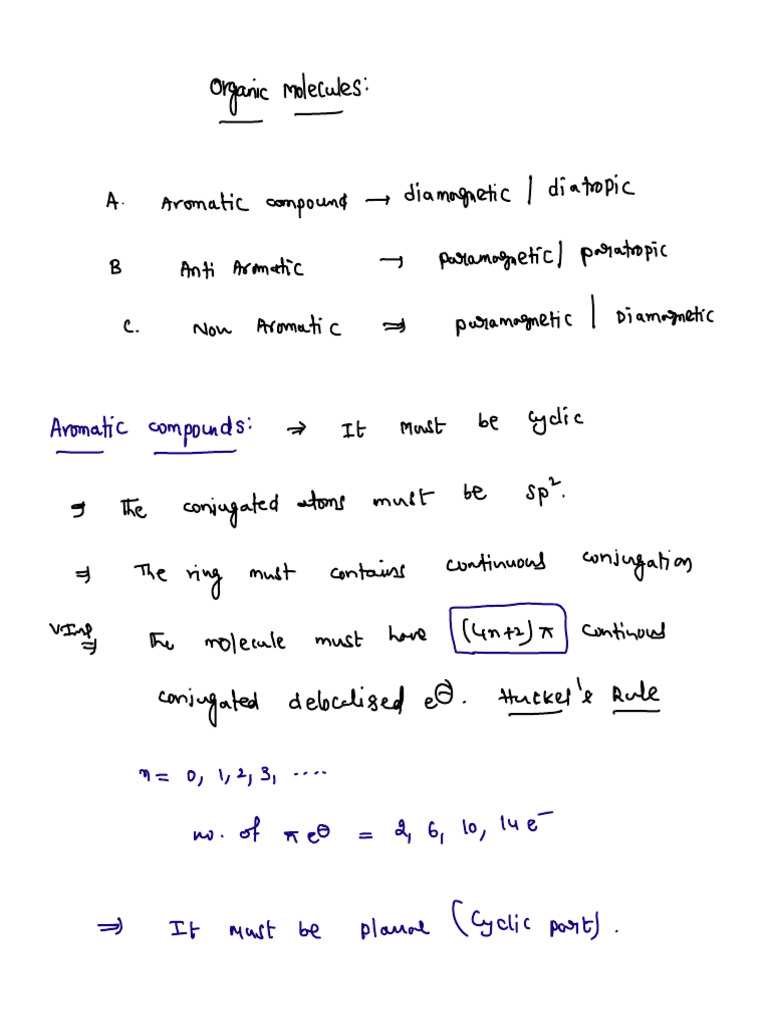 Organic Molecules:
A. Aromatic compound → diamagnetic / diatropic
B Anti Aromatic → paramagnetic / paratropic
C. Non Aromatic ⇒ paramagnetic / Diamagnetic
Aromatic compounds: ⇒ It must be cyclic
⇒ The conjugated atoms must be sp².
⇒ The ring must contains continuous conjugation
V.Imp ⇒ The molecule must have (4n+2) π continous
conjugated delocalised e⊖. Huckel's Rule
n = 0, 1, 2, 3, ....
no. of π e⊖ = 2, 6, 10, 14 e⁻
⇒ It must be planar (Cyclic part).